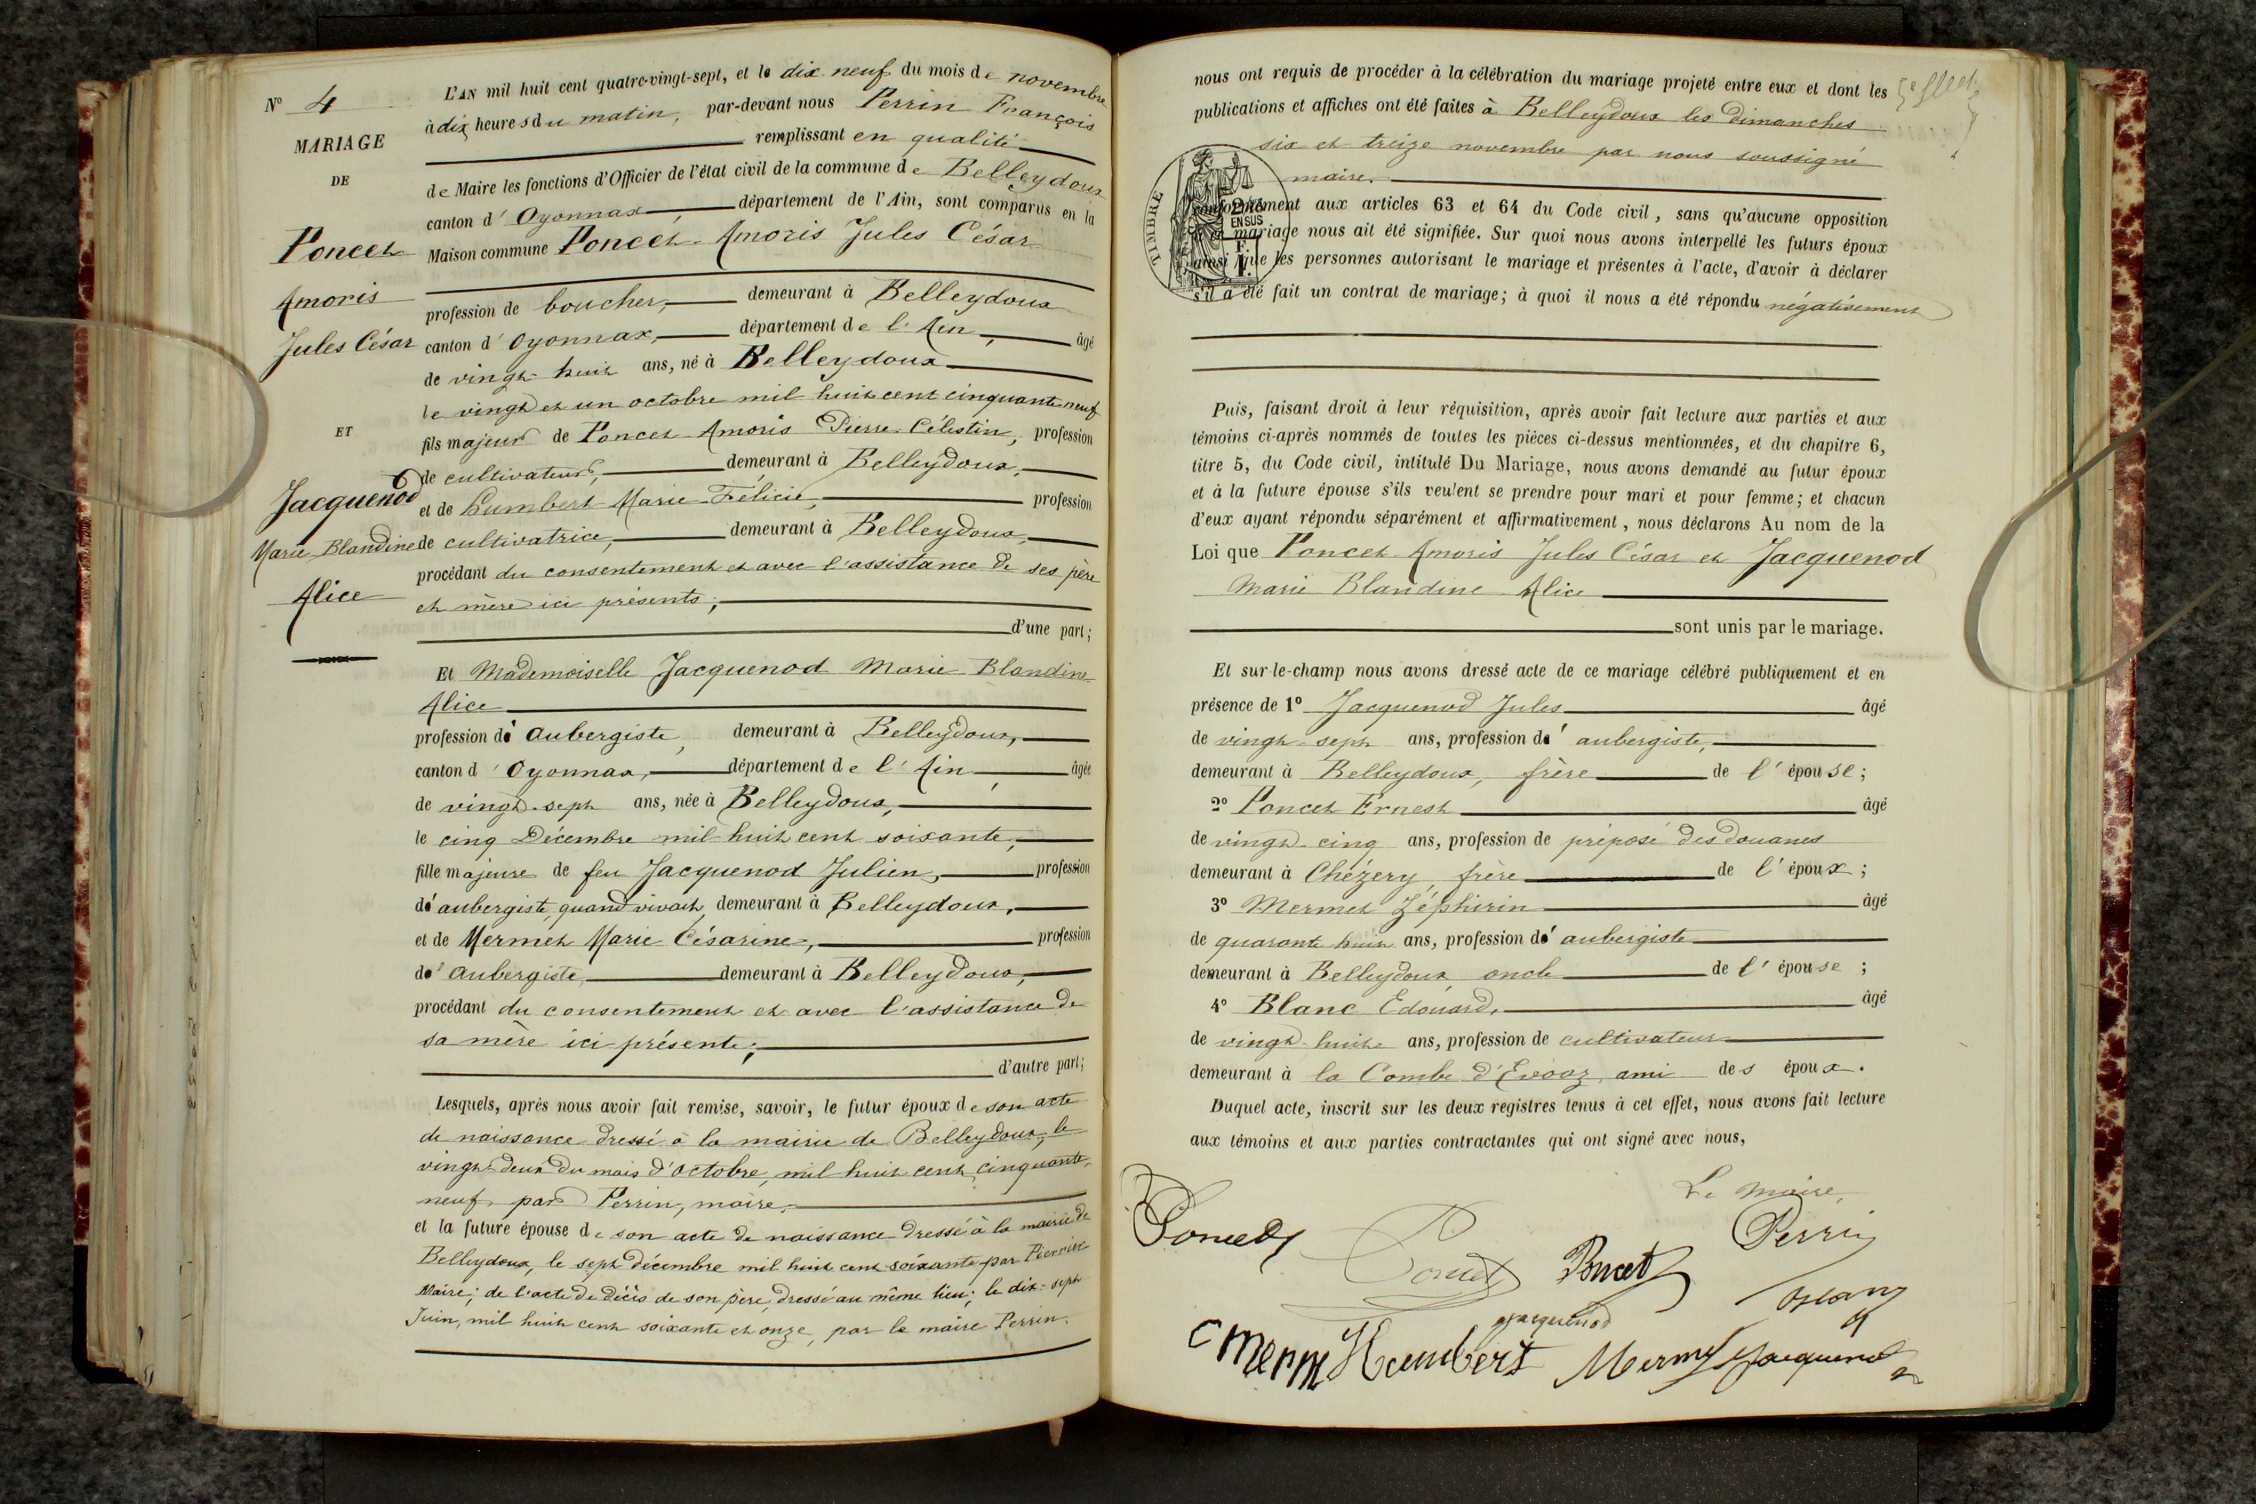 N° 4
MARIAGE
DE
Poncet
Amoris
Jules César
ET
Jacquenod
Marie Blandine
Alice
L'AN mil huit cent quatre-vingt-sept, et le dix neuf du mois de novembre
à dix heures du matin, par-devant nous Perrin François
remplissant en qualité
de Maire les fonctions d'Officier de l'état civil de la commune de Belleydoux
canton d'Oyonnax, département de l'Ain, sont comparus en la
Maison commune Poncet Amoris Jules César
profession de boucher, demeurant à Belleydoux
canton d'Oyonnax, département de l'Ain, âgé
de vingt-huit ans, né à Belleydoux
le vingt et un octobre mil huit cent cinquante neuf
fils majeur de Poncet Amoris Pierre Célestin, profession
de cultivateur, demeurant à Belleydoux,
et de Humbert Marie Félicie, profession
de cultivatrice, demeurant à Belleydoux,
procédant du consentement et avec l'assistance de ses père
et mère ici présents;
d'une part;
Et Mademoiselle Jacquenod Marie Blandine
Alice
profession d'aubergiste, demeurant à Belleydoux,
canton d'Oyonnax, département de l'Ain, âgée
de vingt-sept ans, née à Belleydoux,
le cinq Décembre mil huit cent soixante,
fille majeure de feu Jacquenod Julien, profession
d'aubergiste, quand vivait, demeurant à Belleydoux,
et de Mermet Marie Césarine, profession
d'aubergiste, demeurant à Belleydoux,
procédant du consentement et avec l'assistance de
sa mère ici présente;
d'autre part;
Lesquels, après nous avoir fait remise, savoir, le futur époux de son acte
de naissance dressé à la mairie de Belleydoux, le
vingt-deux du mois d'octobre, mil huit cent cinquante-
neuf, par Perrin, maire,
et la future épouse de son acte de naissance dressé à la mairie de
Belleydoux, le sept décembre mil huit cent soixante par
Maire; de l'acte de décès de son père, dressé au même lieu; le dix-sept
Juin, mil huit cent soixante et onze, par le maire Perrin.
nous ont requis de procéder à la célébration du mariage projeté entre eux et dont les
publications et affiches ont été faites à Belleydoux les dimanches
six et treize novembre par nous soussigné
maire.
TIMBRE
2/10
EN SUS
conformément aux articles 63 et 64 du Code civil, sans qu'aucune opposition
à ce mariage nous ait été signifiée. Sur quoi nous avons interpellé les futurs époux
ainsi que les personnes autorisant le mariage et présentes à l'acte, d'avoir à déclarer
s'il a été fait un contrat de mariage; à quoi il nous a été répondu négativement
Puis, faisant droit à leur réquisition, après avoir fait lecture aux parties et aux
témoins ci-après nommés de toutes les pièces ci-dessus mentionnées, et du chapitre 6,
titre 5, du Code civil, intitulé Du Mariage, nous avons demandé au futur époux
et à la future épouse s'ils veulent se prendre pour mari et pour femme; et chacun
d'eux ayant répondu séparément et affirmativement, nous déclarons Au nom de la
Loi que Poncet Amoris Jules César et Jacquenod
Marie Blandine Alice
sont unis par le mariage.
Et sur-le-champ nous avons dressé acte de ce mariage célébré publiquement et en
présence de 1° Jacquenod Jules âgé
de vingt-sept ans, profession d'aubergiste,
demeurant à Belleydoux, frère de l'épouse;
2° Poncet Ernest âgé
de vingt-cinq ans, profession de préposé des douanes
demeurant à Chézery, frère de l'époux;
3° Mermet Zéphirin âgé
de quarante huit ans, profession d'aubergiste
demeurant à Belleydoux, oncle de l'épouse;
4° Blanc Edouard, âgé
de vingt-huit ans, profession de cultivateur
demeurant à la Combe d'Evoaz, ami des époux.
Duquel acte, inscrit sur les deux registres tenus à cet effet, nous avons fait lecture
aux témoins et aux parties contractantes qui ont signé avec nous,
Le Maire,
Poncet
Poncet
Poncet
Perrin
Jacquenod
Humbert
Mermet
Jacquenod